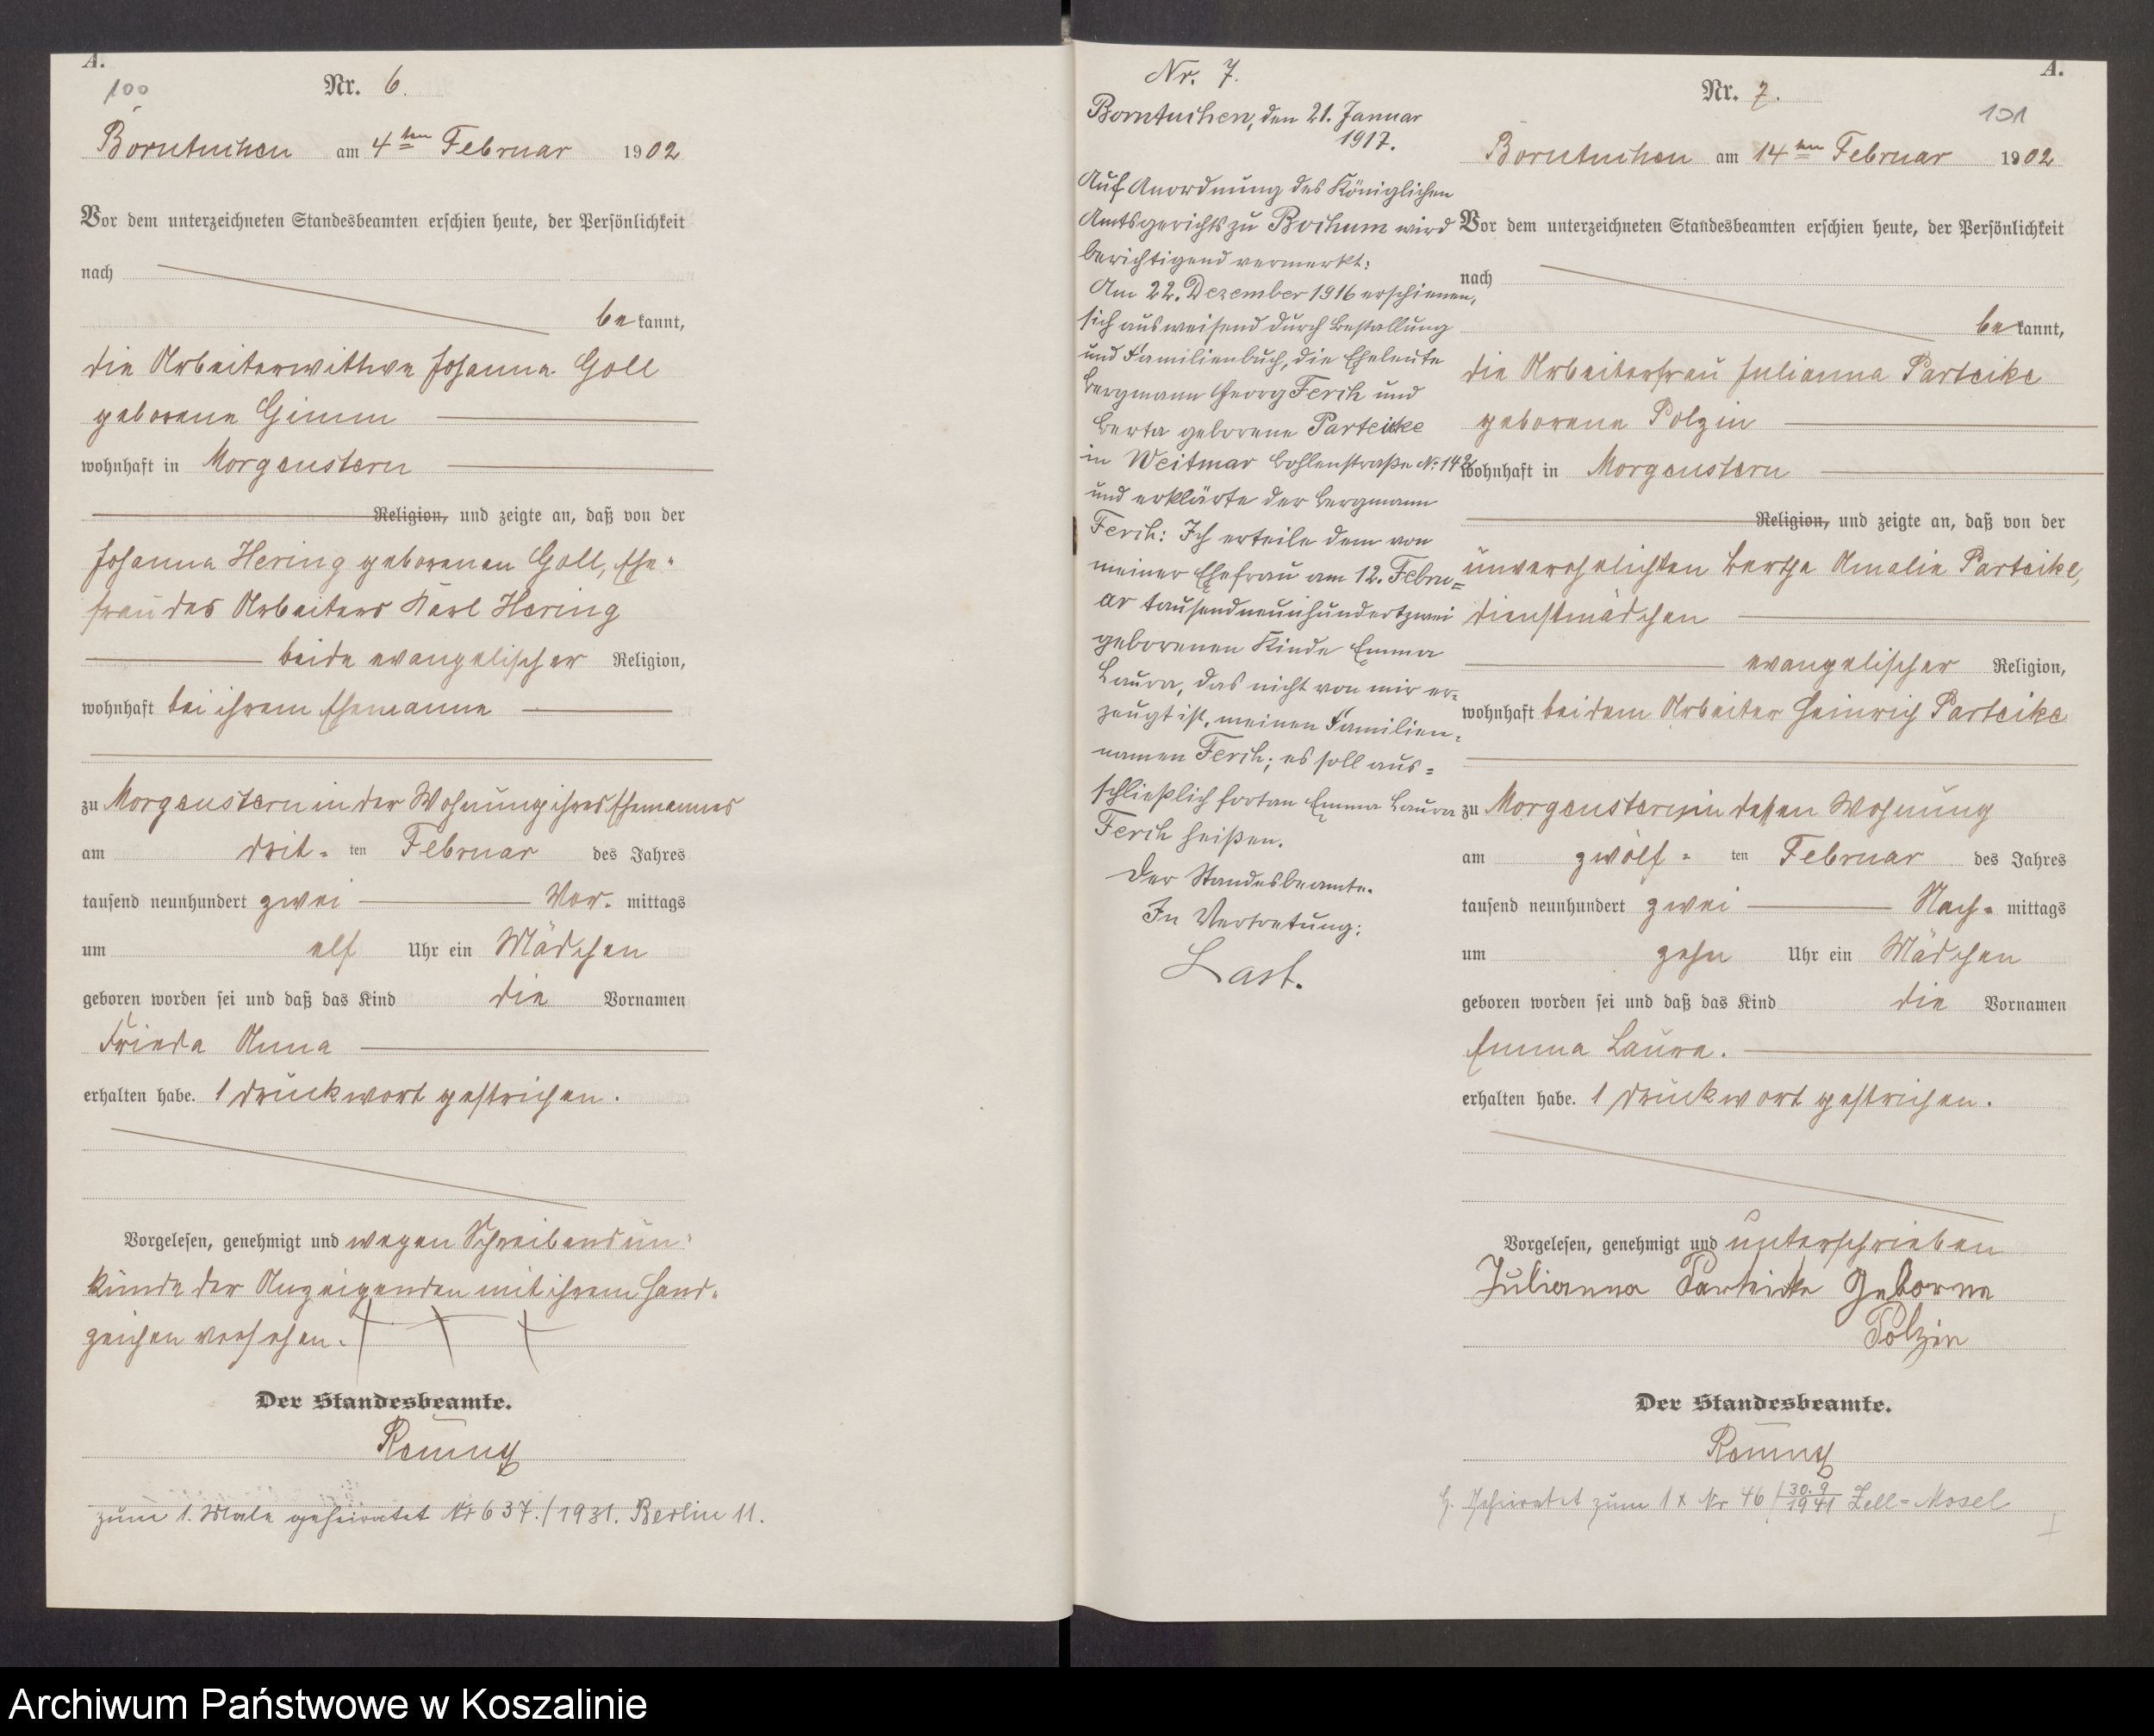 A.
100
Nr. 6.
Borntuchen am 4ten Februar 1902
Vor dem unterzeichneten Standesbeamten erschien heute, der Persönlichkeit
nach
be kannt,
die Arbeiterwittwe Johanna Goll
geborene Gimm
wohnhaft in Morgenstern
Religion, und zeigte an, daß von der
Johanna Hering geborenen Goll, Ehe-
frau des Arbeiters Karl Hering
beide evangelischer Religion,
wohnhaft bei ihrem Ehemanne
zu Morgenstern in der Wohnung ihres Ehemannes
am drit- ten Februar des Jahres
tausend neunhundert zwei Vor- mittags
um elf Uhr ein Mädchen
geboren worden sei und daß das Kind die Vornamen
Frieda Anna
erhalten habe. 1 Druckwort gestrichen.
Vorgelesen, genehmigt und wegen Schreibensun-
kunde der Anzeigenden mit ihrem Hand-
zeichen versehen. + + +
Der Standesbeamte.
zum 1. Male geheiratet Nr 637./1931. Berlin 11.
Nr. 7.
Borntuchen, den 21. Januar
1917.
Auf Anordnung des Königlichen
Amtsgerichts zu Bochum wird
berichtigend vermerkt:
Am 22. Dezember 1916 erschienen,
sich ausweisend durch Bestallung
und Familienbuch, die Eheleute
Bergmann Georg Ferch und
Berta geborene Parteicke
in Weitmar Bohlenstraße No 142
und erklärte der Bergmann
Ferch: Ich erteile dem von
meiner Ehefrau am 12. Febru=
ar tausendneunhundertzwei
geborenen Kinde Emma
Laura, das nicht von mir er-
zeugt ist, meinen Familien-
namen Ferch; es soll aus=
schließlich fortan Emma Laura
Ferch heißen.
Der Standesbeamte.
In Vertretung:
Last.
A.
Nr. 7.
101
Borntuchen am 14ten Februar 1902
Vor dem unterzeichneten Standesbeamten erschien heute, der Persönlichkeit
nach
be kannt,
die Arbeiterfrau Julianna Parteike
geborene Polzin
wohnhaft in Morgenstern
Religion, und zeigte an, daß von der
unverehelichten Bertha Amalie Parteike,
Dienstmädchen
evangelischer Religion,
wohnhaft bei dem Arbeiter Heinrich Parteike
zu Morgenstern, in dessen Wohnung
am zwölf- ten Februar des Jahres
tausend neunhundert zwei Nach- mittags
um zehn Uhr ein Mädchen
geboren worden sei und daß das Kind die Vornamen
Emma Laura.
erhalten habe. 1 Druckwort gestrichen.
Vorgelesen, genehmigt und unterschrieben
Julianna Parteicke Geborne
Polzin
Der Standesbeamte.
G. Geheiratet zum 1x Nr 46/30.9 1941 Zell-Mosel
I
Archiwum Państwowe w Koszalinie